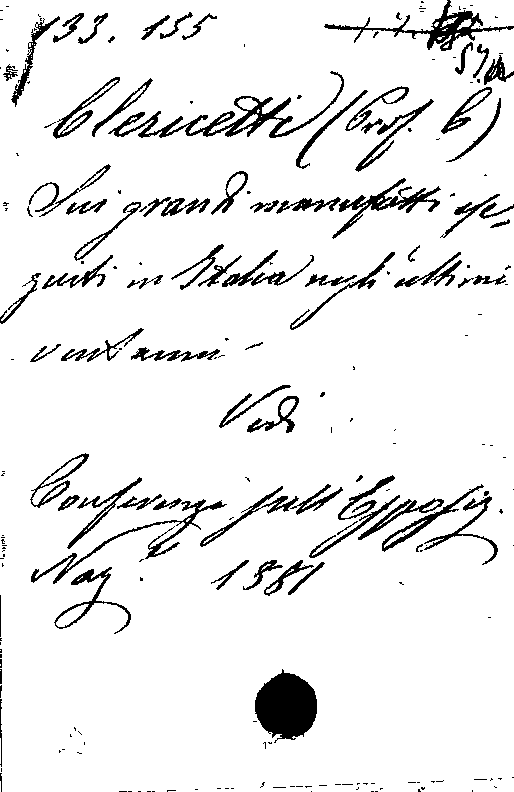 133. 155
Clericetti (Prof. C)
Sui grandi manufatti ese-
guiti in Italia negli ultimi
vent'anni -
Vedi
Conferenze sull'Esposiz.
Naz.e 1881